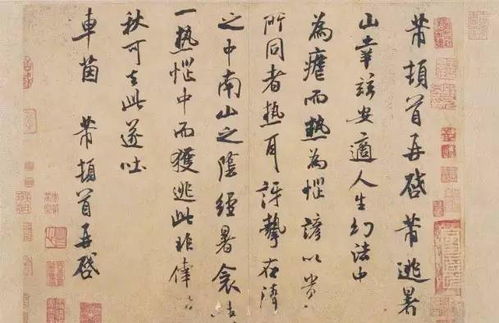 芾頓首再啓芾逃暑
山幸茲安適人生幻法中
為虐而熱為惱諺以貴
所同者熱耳訝摯在清
之中南山之陰經暑衾
一熱惱中而獲逃此非幸
秋可去此遂吐
車茵 芾頓首再啓